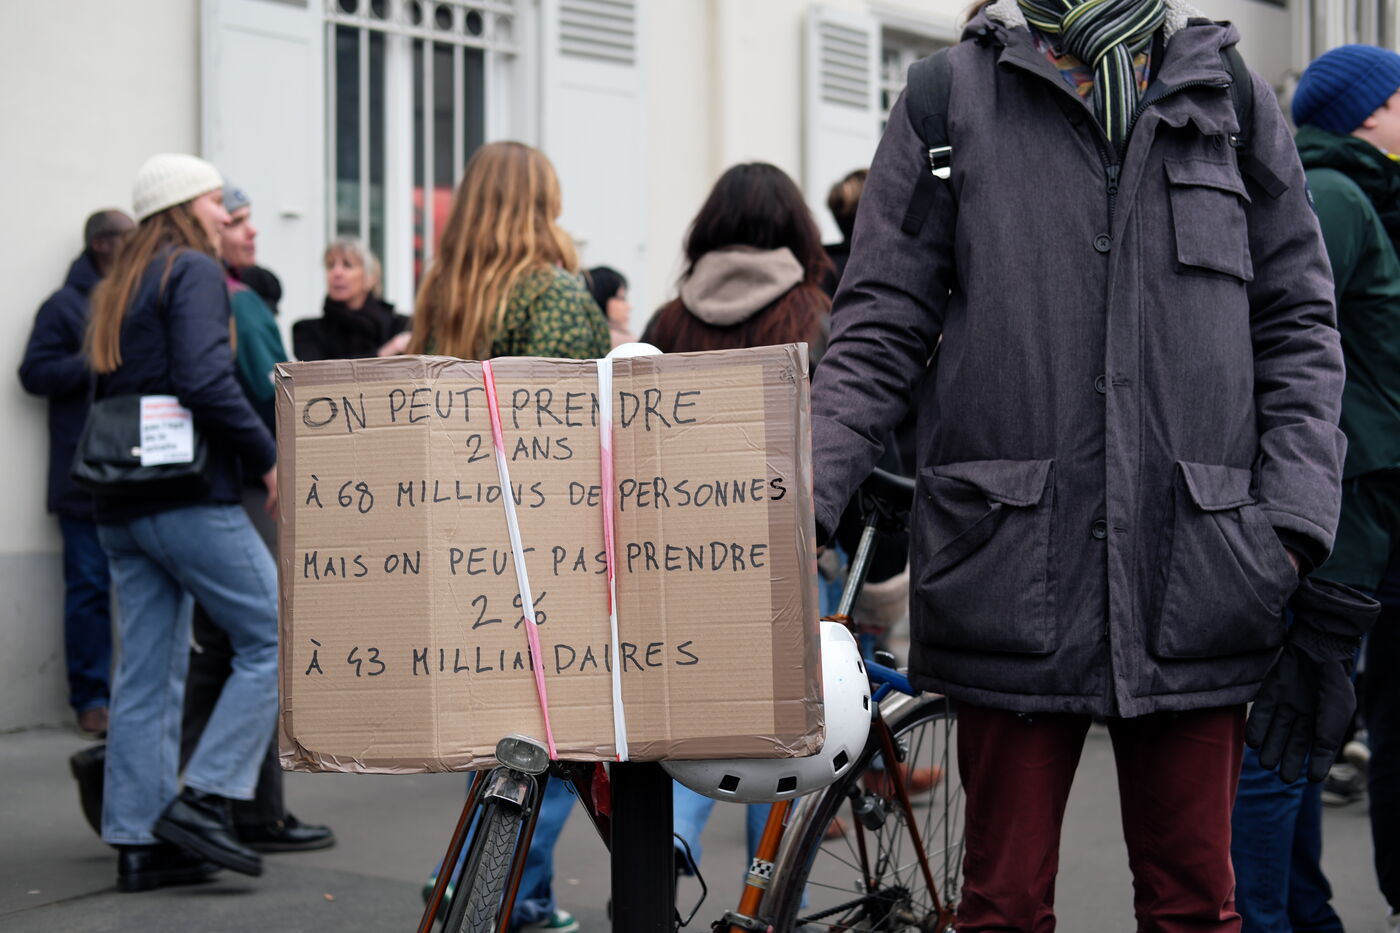 ON PEUT PRENDRE
2 ANS
À 68 MILLIONS DE PERSONNES
MAIS ON PEUT PAS PRENDRE
2 %
À 43 MILLIARDAIRES